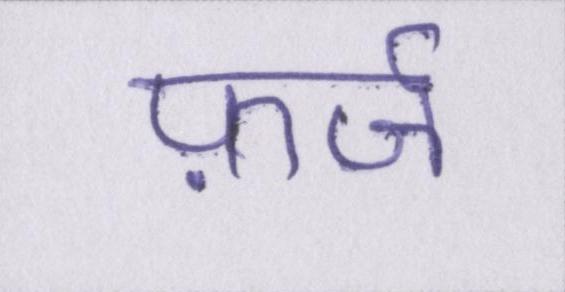 फ़र्ज